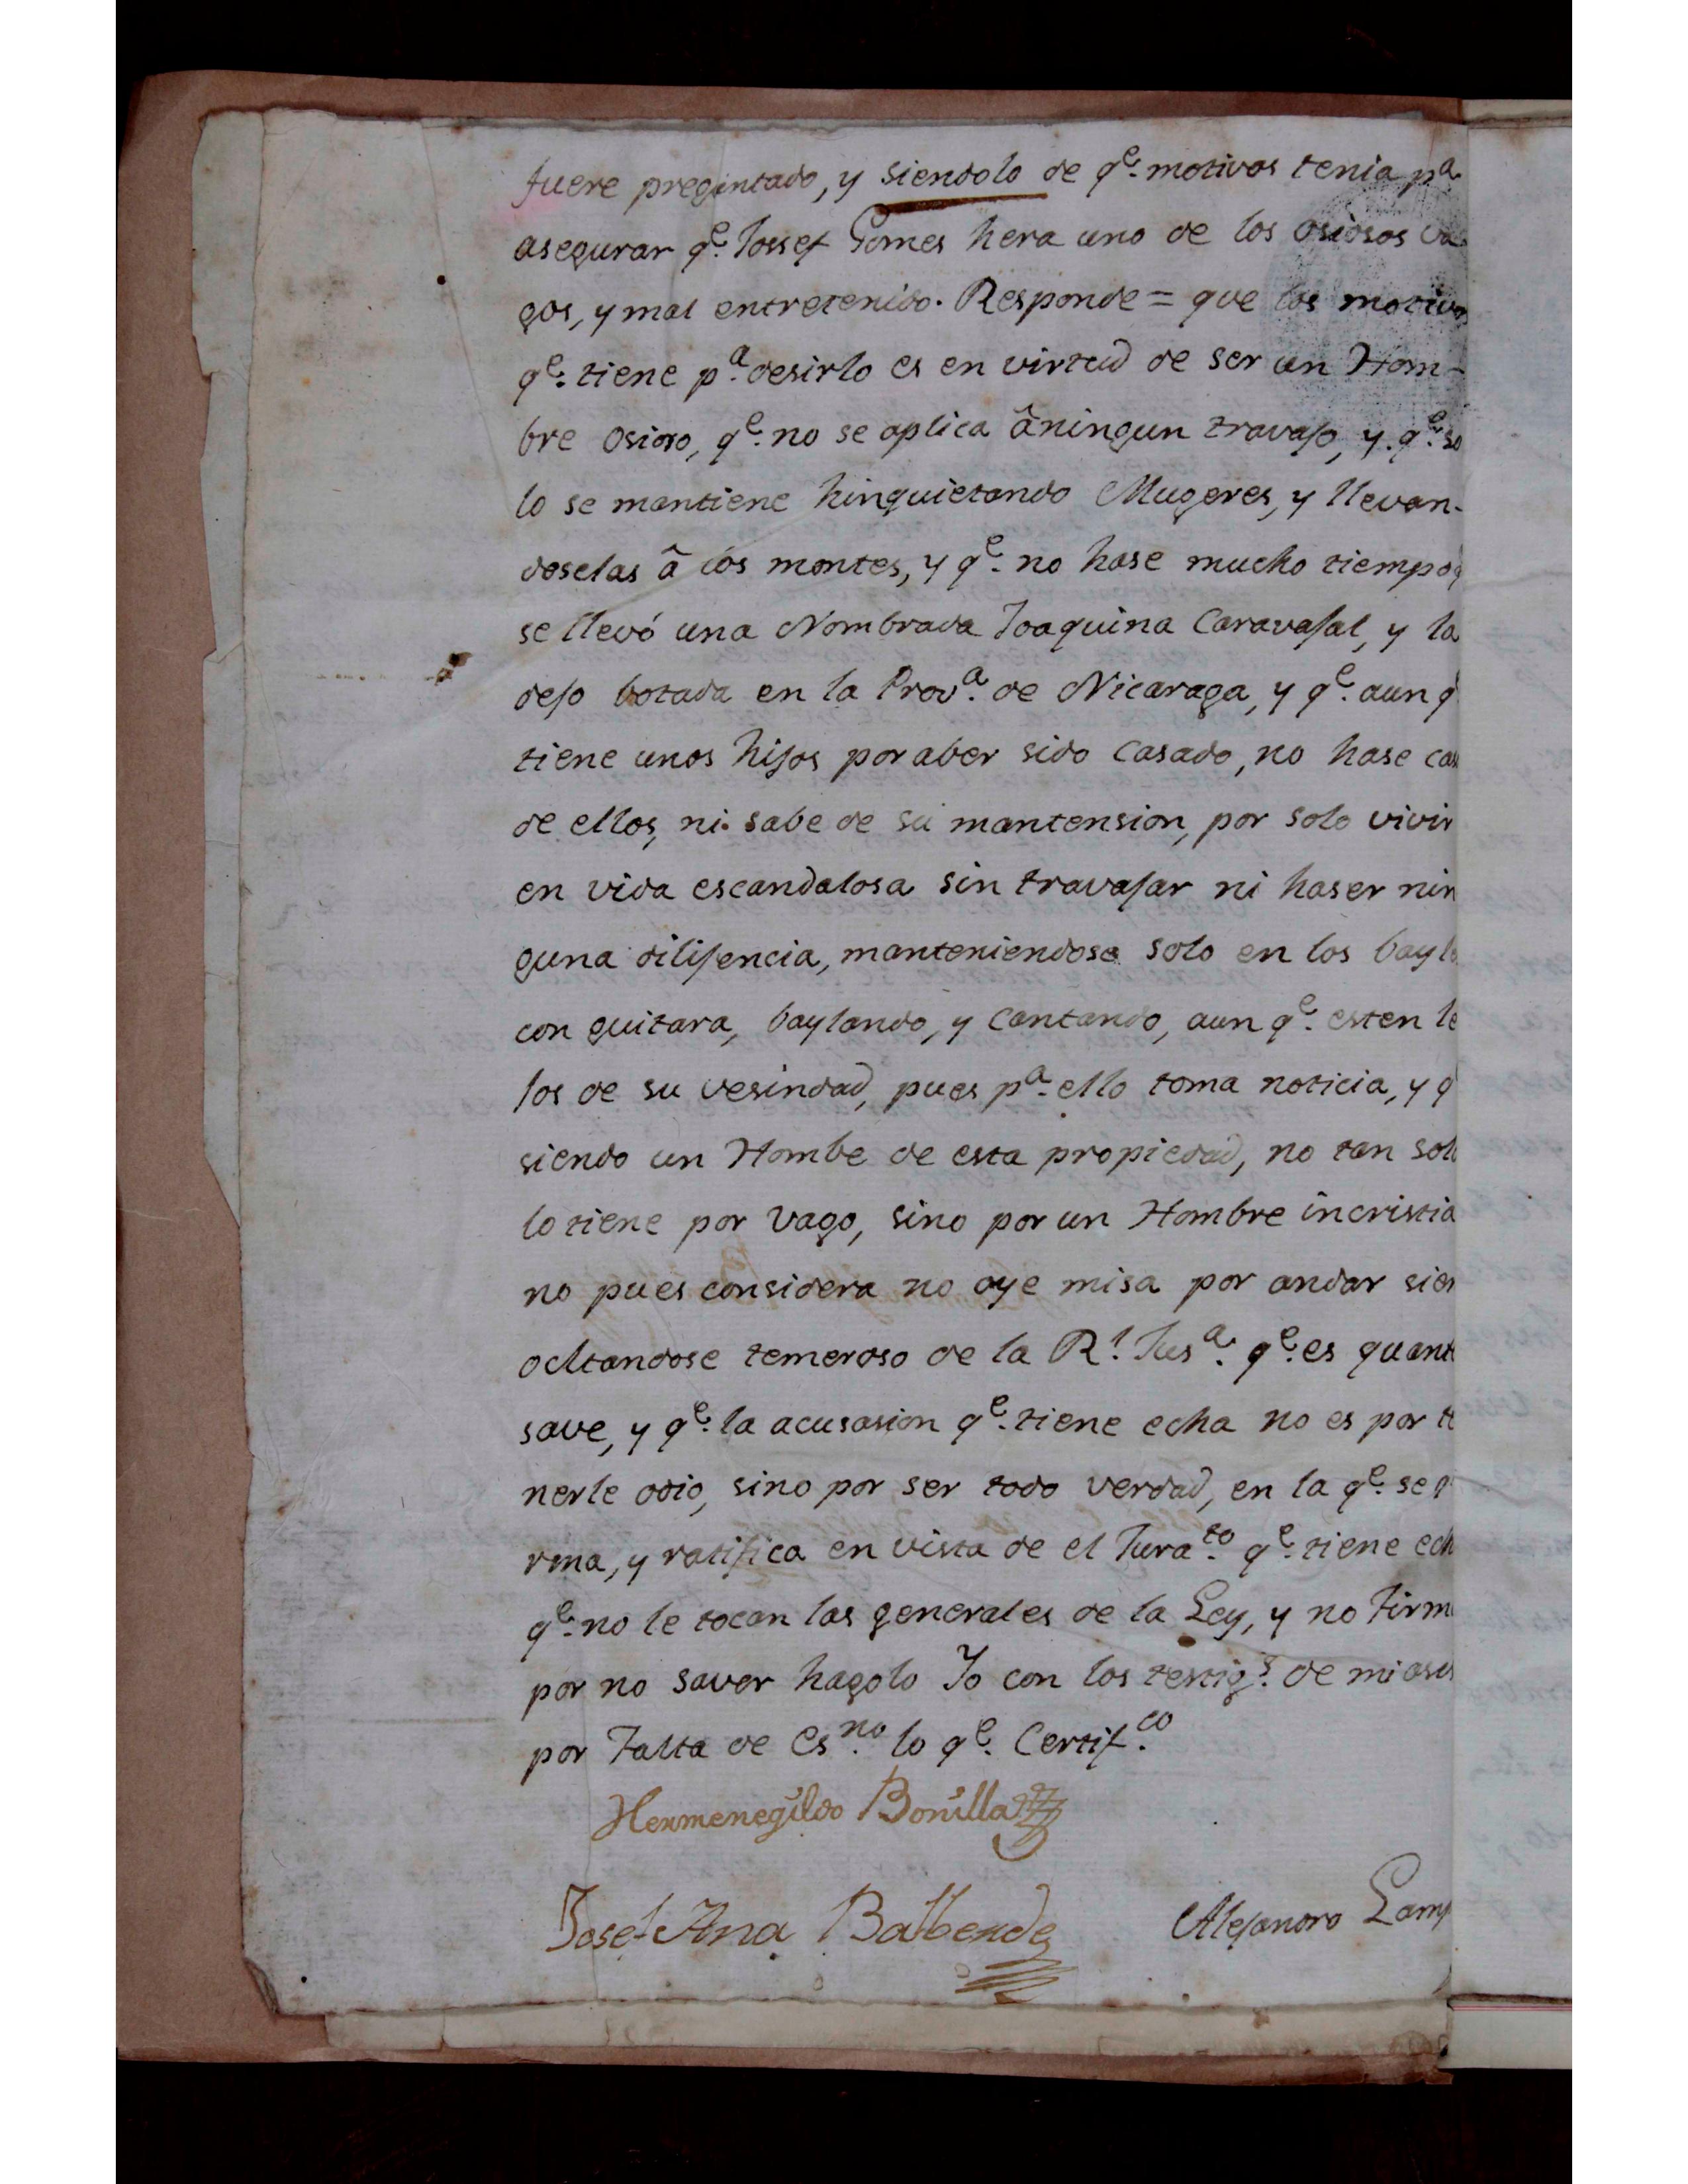 fuere pregintado, y siendolo de q.e motivos tenia p.a
asegurar q.e Jossef Gomes hera uno de los osiosos va
gos, y mal entretenido. Responde = que los motivos
q.e tiene p.a desirlo es en virtud de ser un Hom-
bre osioso, q.e no se aplica â ningun travajo, y q.e so
lo se mantiene hinquietando Mugeres, y llevan-
doselas â los montes, y q.e no hase mucho tiempo q
se llevó una Nombrada Joaquina Caravajal, y la
dejo botada en la Prov.a de Nicaraga, y q.e aun q
tiene unos hijos por aber sido casado, no hase cas
de ellos, ni sabe de su mantension, por solo vivir
en vida escandalosa sin travajar ni haser nin
guna dilijencia, manteniendose solo en los bayle
con guitara, baylando, y cantando, aun q.e esten le
jos de su vesindad, pues p.a ello toma noticia, y q
siendo un Hombe de esta propiedad, no tan solo
lo tiene por vago, sino por un Hombre incristia
no pues considera no oye misa por andar sien
ocltandose temeroso de la R.l Jus.a q.e es quant
save, y q.e la acusasion q.e tiene echa no es por te
nerle odio, sino por ser todo verdad, en la q.e se
rma, y ratifica en vista de el Jura.to q.e tiene ech
q.e no le tocan las generales de la Ley, y no firm
por no saver hagolo Yo con los testig.s de mi asis
por falta de Es.no lo q.e Certif.co
Hermenegildo Bonilla
José Ana Balberde
Alejandro Lamp